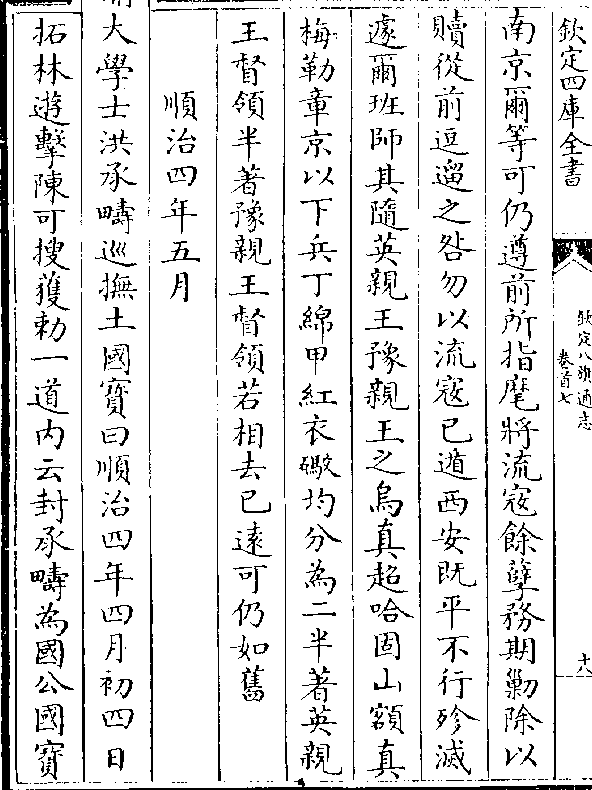 欽定四庫全書
欽定八旗通志
卷首七
十八
南京爾等可仍遵前所指麾將流寇餘孽務期勦除以
贖從前逗遛之咎勿以流寇已遁西安既平不行殄滅
遽爾班師其隨英親王豫親王之烏真超哈固山額真
梅勒章京以下兵丁綿甲紅衣礮均分為二半著英親
王督領半著豫親王督領若相去已遠可仍如舊
順治四年五月
大學士洪承疇巡撫土國寶曰順治四年四月初四日
拓林遊擊陳可搜獲勅一道内云封承疇為國公國寶